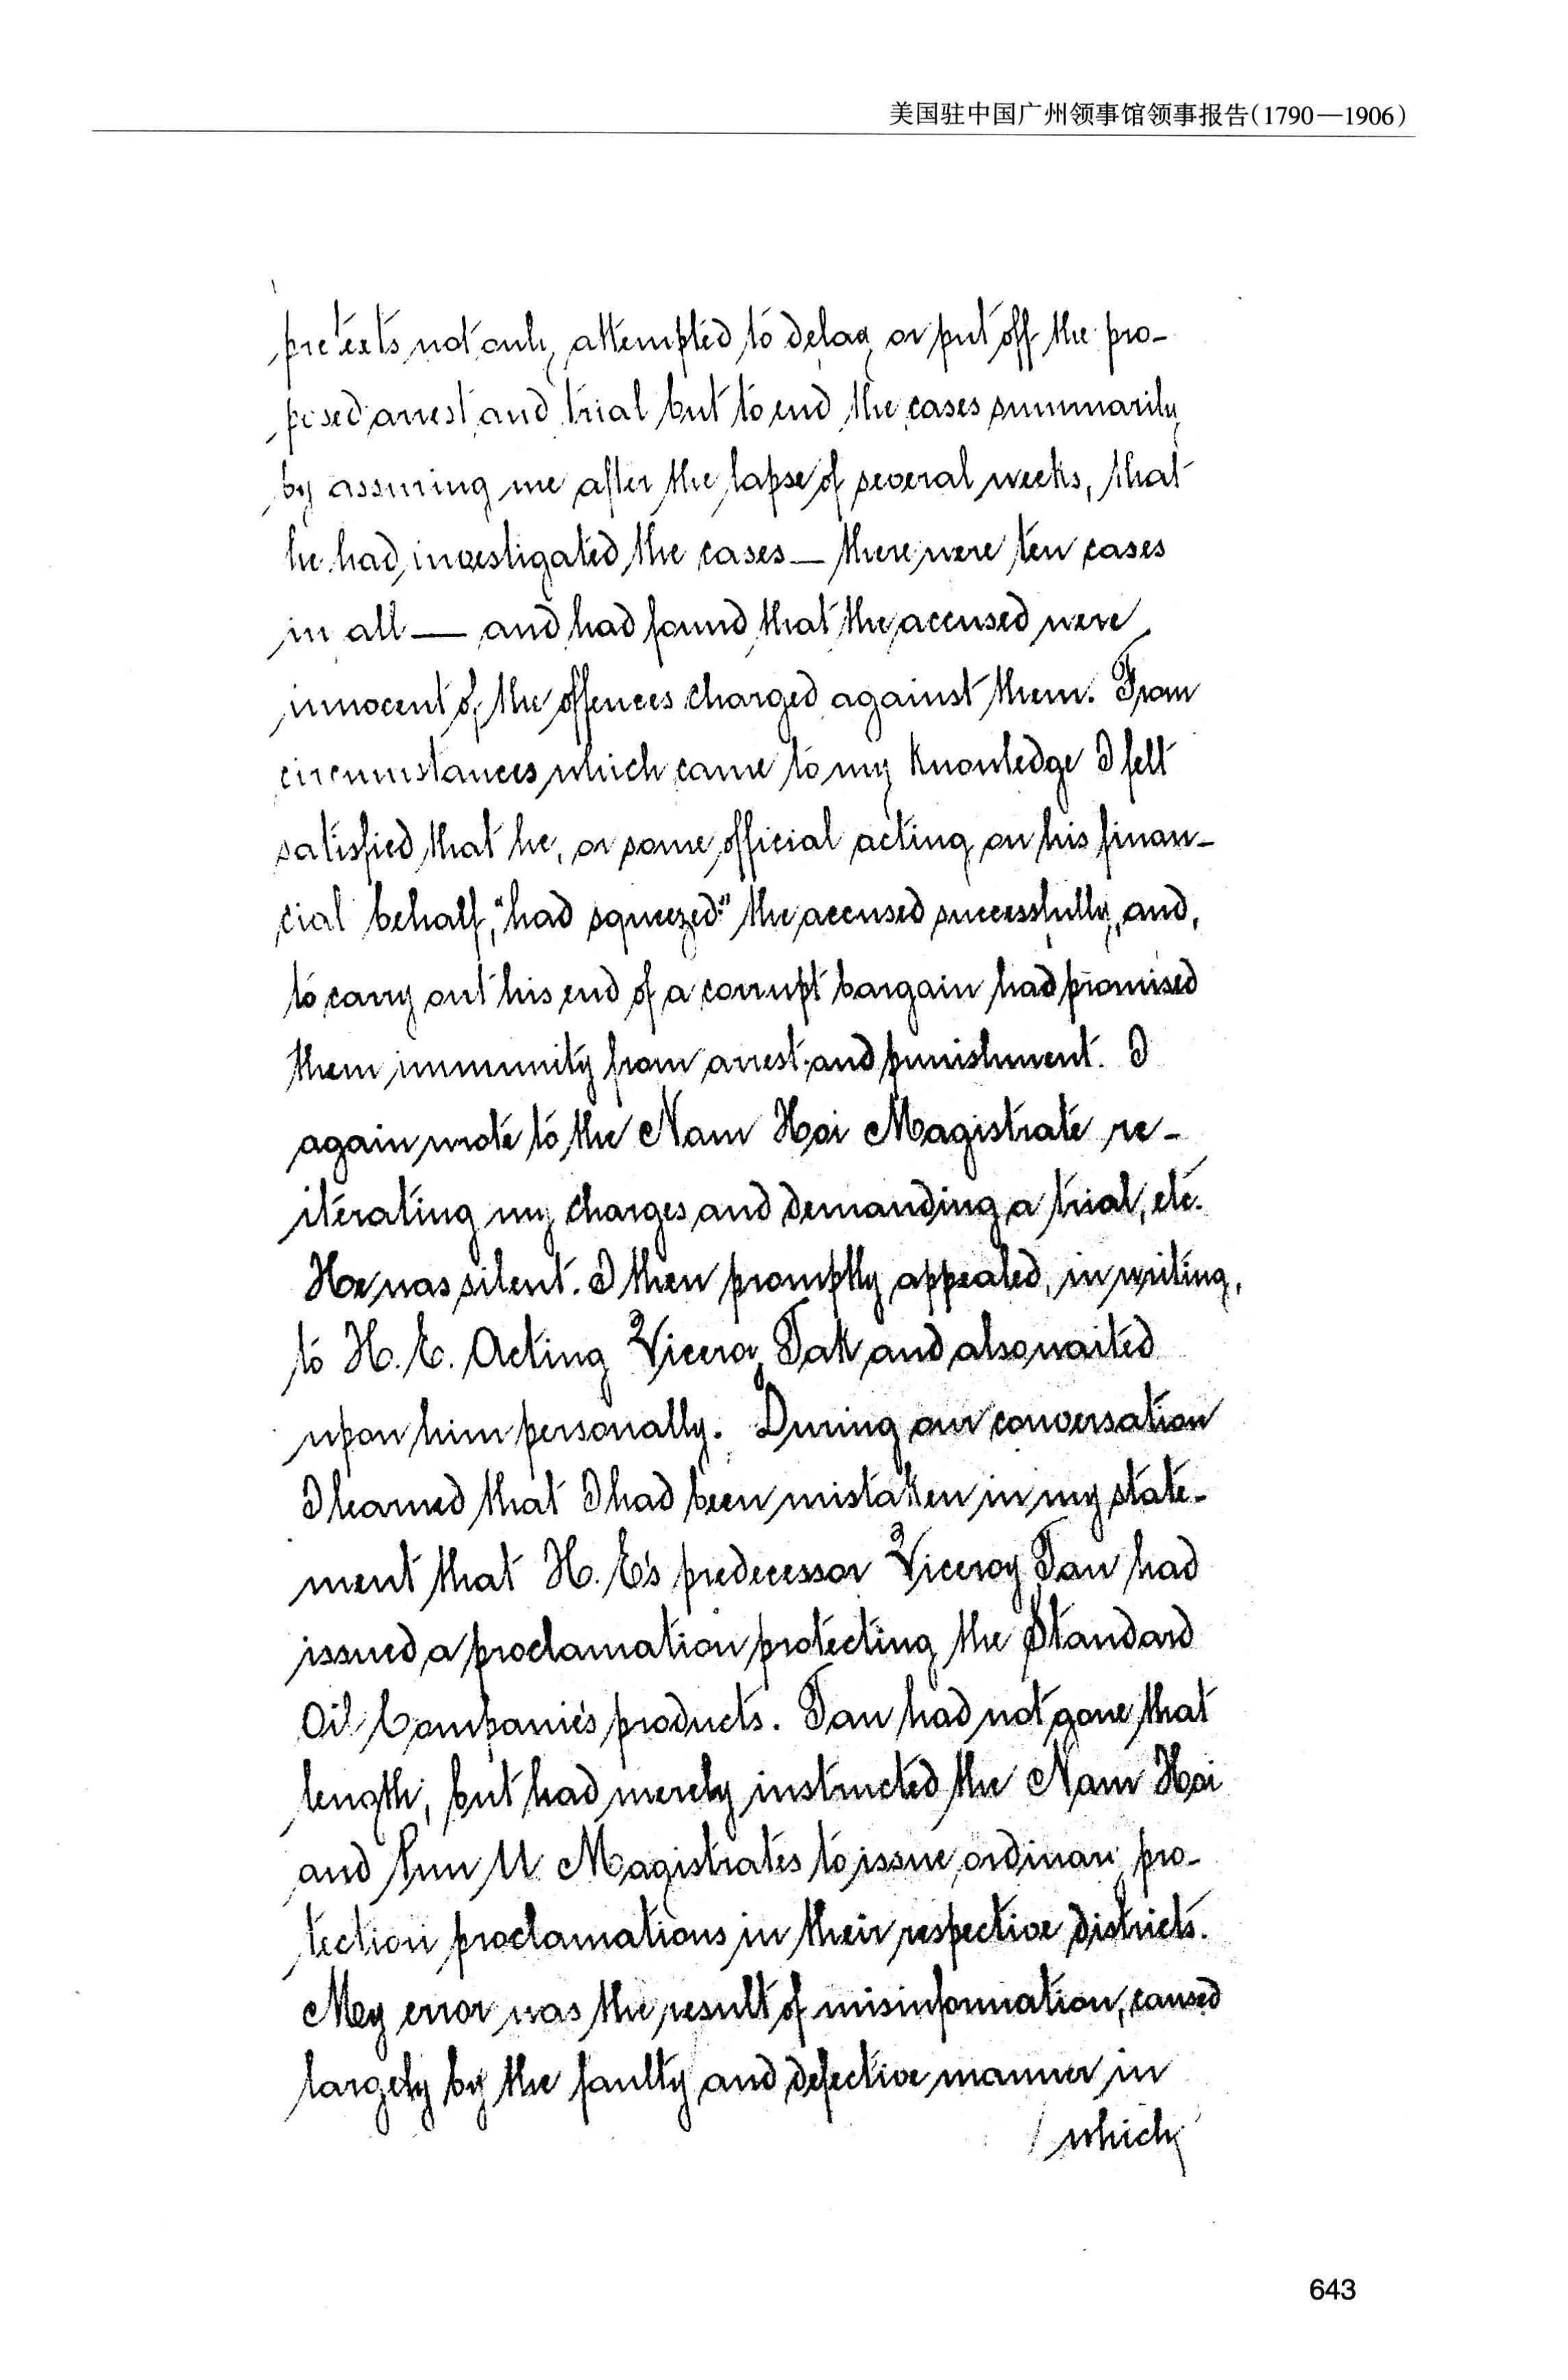 美国驻中国广州领事馆领事报告(1790—1906)
pretexts not only attempted to delay or put off the pro-
posed arrest and trial but to end the cases summarily
by assuring me after the lapse of several weeks, that
he had investigated the cases — there were ten cases
in all — and had found that the accused were
innocent of the offences charged against them. From
circumstances which came to my knowledge I felt
satisfied that he, or some official acting on his finan-
cial behalf, "had squeezed" the accused successfully, and,
to carry out his end of a corrupt bargain had promised
them immunity from arrest and punishment. I
again wrote to the Nam Hoi Magistrate re-
iterating my charges and demanding a trial, etc.
He was silent. I then promptly appealed, in writing,
to H. E. Acting Viceroy Tak and also waited
upon him personally. During our conversation
I learned that I had been mistaken in my state-
ment that H. E's predecessor Viceroy Tau had
issued a proclamation protecting the Standard
Oil Companie's products. Tau had not gone that
length, but had merely instructed the Nam Hoi
and Sun U Magistrates to issue ordinary pro-
tection proclamations in their respective districts.
My error was the result of misinformation, caused
largely by the faulty and defective manner in
/ which
643